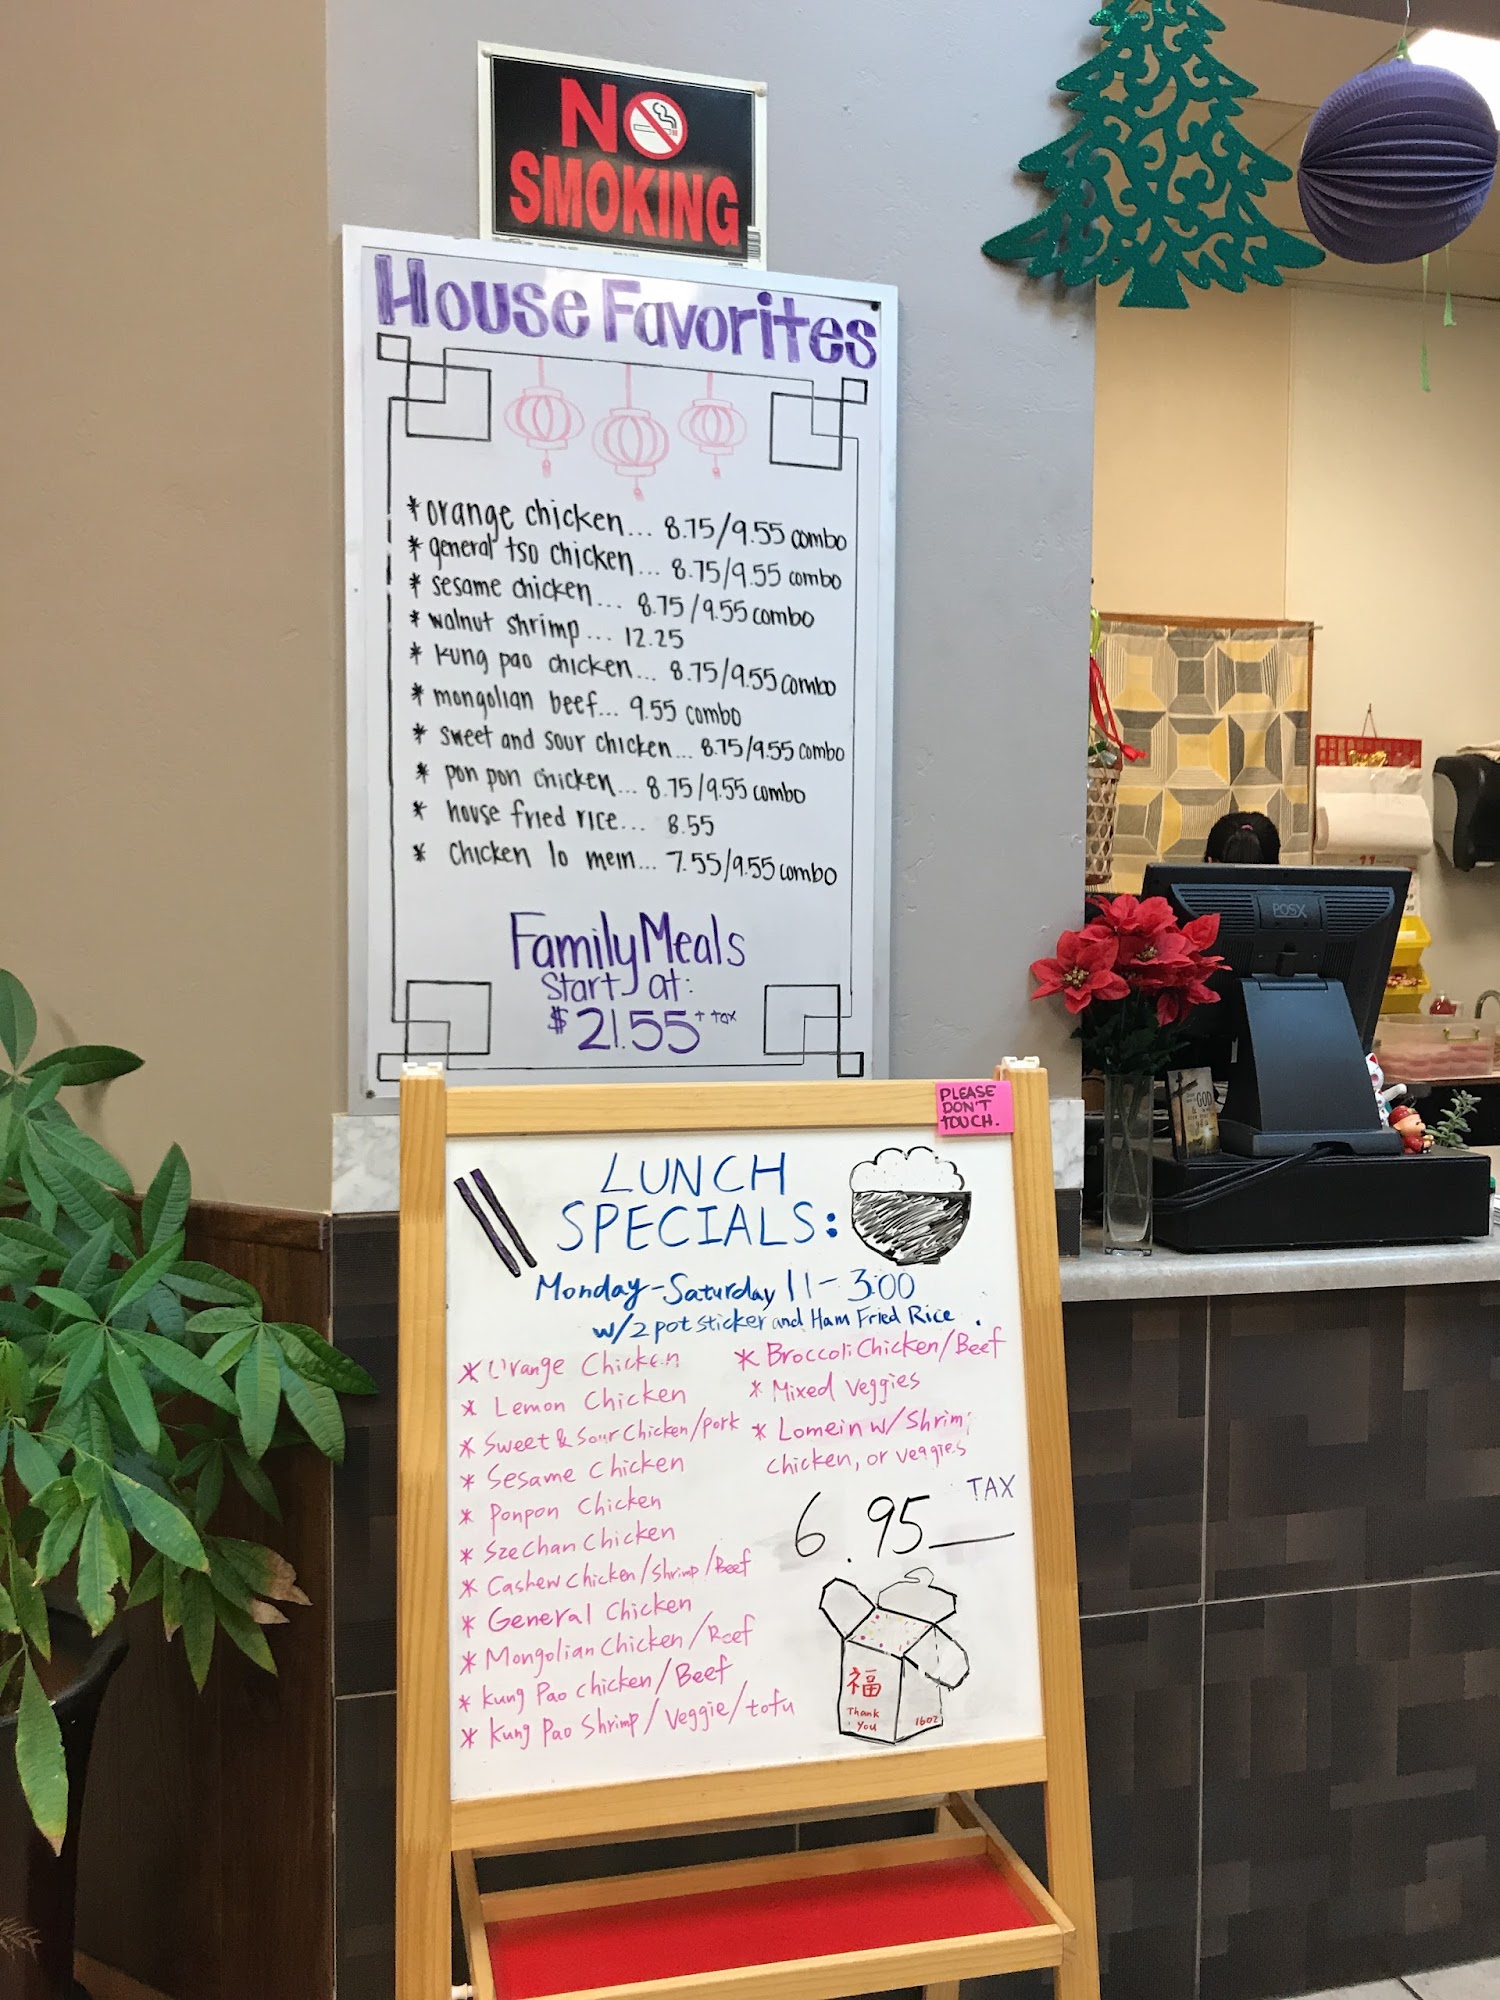 NO
SMOKING
House Favorites
* orange chicken... 8.75/9.55 combo
* general tso chicken... 8.75/9.55 combo
* sesame chicken... 8.75/9.55 combo
* walnut shrimp... 12.25
* kung pao chicken... 8.75/9.55 combo
* mongolian beef... 9.55 combo
* sweet and sour chicken... 8.75/9.55 combo
* pon pon chicken... 8.75/9.55 combo
* house fried rice... 8.55
* chicken lo mein... 7.55/9.55 combo
Family Meals
Start at:
$21.55 + tax
PLEASE
DON'T
TOUCH.
LUNCH
SPECIALS:
Monday-Saturday 11-3:00
w/2 pot sticker and Ham Fried Rice.
* Orange Chicken
* Lemon Chicken
* Sweet & Sour Chicken/pork
* Sesame Chicken
* Ponpon Chicken
* Szechan Chicken
* Cashew chicken/Shrimp/Beef
* General Chicken
* Mongolian Chicken/Beef
* kung Pao chicken/Beef
* kung Pao Shrimp/veggie/tofu
* Broccoli Chicken/Beef
* Mixed veggies
* Lomein w/ Shrim
chicken, or veggies
6.95 TAX
福
Thank
You
16oz
POSX
GOD
11